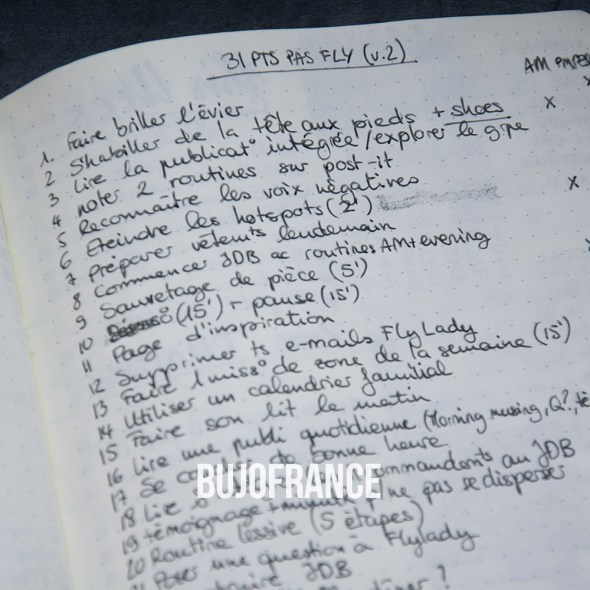 31 PTS PAS FLY (v.2)
AM
1. Faire briller l'évier
2 S'habiller de la tête aux pieds + shoes
3 Lire la publicat° intégrée/explorer le grpe
4 noter 2 routines sur post-it
5 Reconnaître les voix négatives
6 Eteindre les hotspots (2')
7 Préparer vêtemts lendemain
8 Commencer JDB ac routines AM+evening
9 Sauvetage de pièce (5')
10 (15') + pause (15')
11 Page d'inspiration
12 Supprimer ts e-mails FlyLady
13 Faire 1 miss° de zone de la semaine (15')
14 Utiliser un calendrier familial
15 Faire son lit le matin
16 Lire une publi quotidienne (Morning musing, Q?, té
17 Se de bonne heure
18 Lire commandemts au JDB
19 témoignage + ne pas se disperser
20 Routine lessive (5 étapes)
Poser une question à Flylady
JDB
BUJOFRANCE